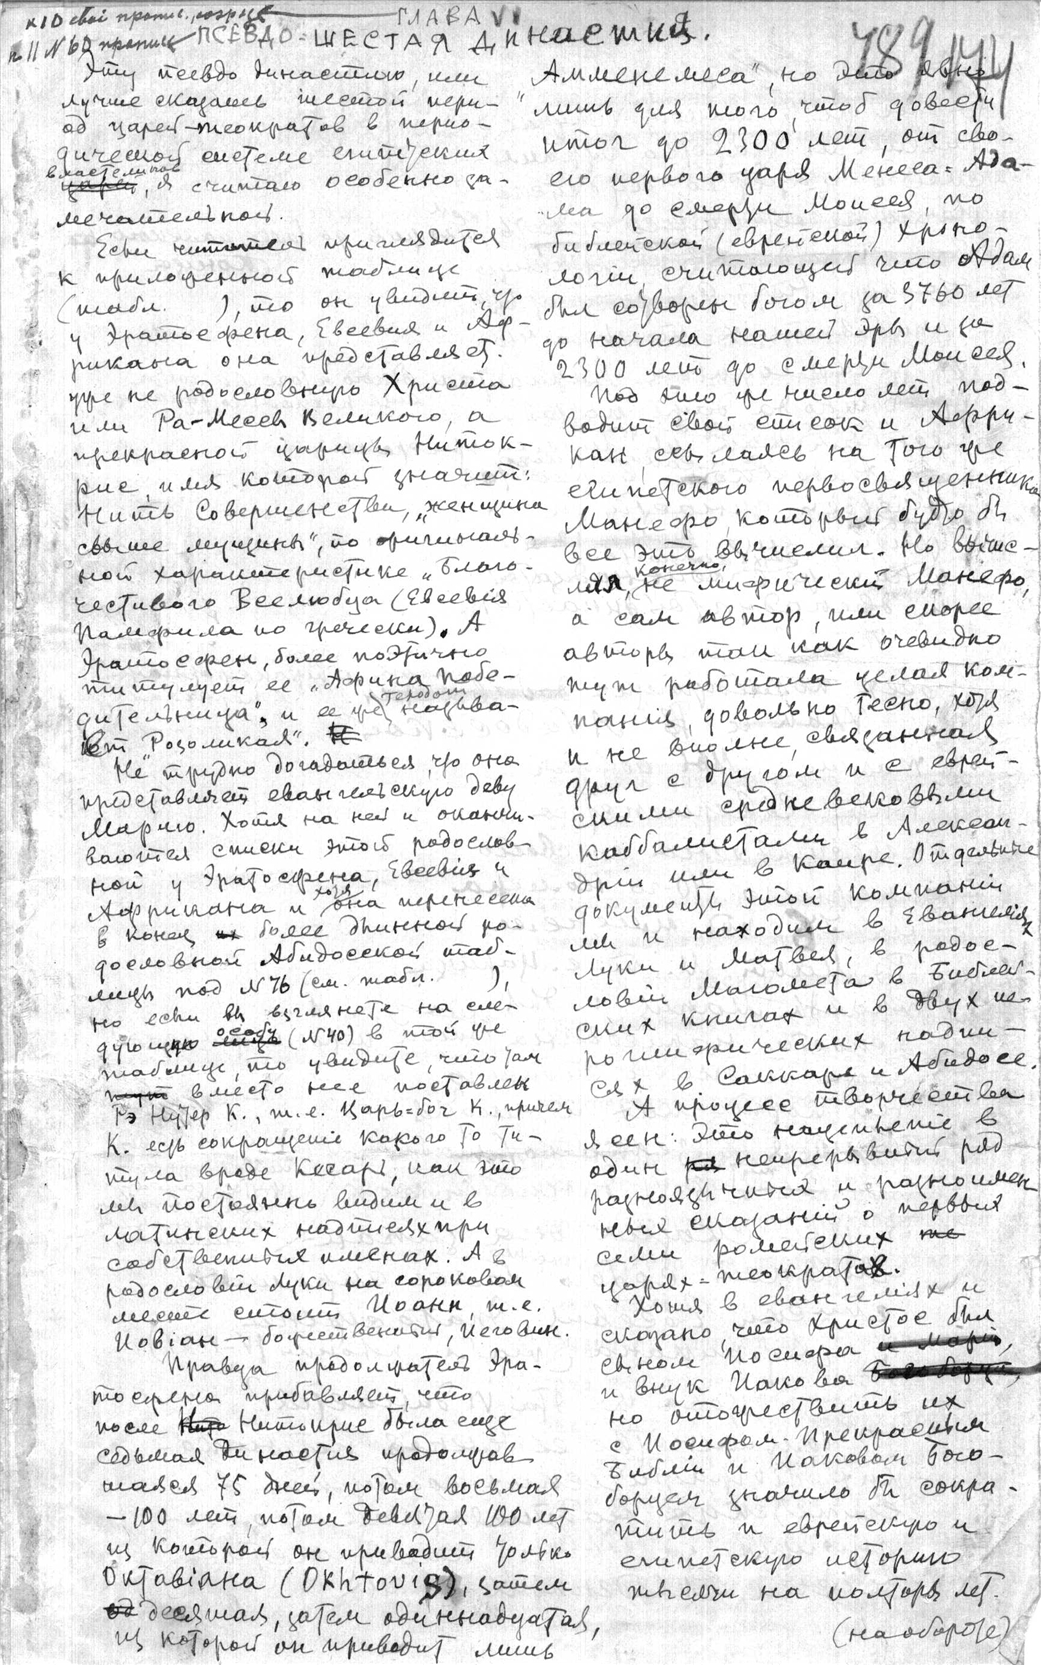 к 10 свой пропис., корр.
к 11 № 60 пропись
ГЛАВА VI
789 144
ПСЕВДО-ШЕСТАЯ ДИНАСТИЯ.
Эту псевдо династию, или
лучше сказать шестой пери-
од царей-теократов в перио-
дической системе египетских
властелинов
царей, я считаю особенно за-
мечательной.
Если читатель приглядится
к приложенной таблице
(табл. ), то он увидит, что
у Эратосфена, Евсевия и Аф-
рикана она представляет
уже не родословную Христа
или Ра-Месев Великого, а
прекрасной царицы Ниток-
рис, имя которой значит:
Нить Совершенства, „женщина
свыше мущины", по оригиналь-
ной характеристике „Благо-
честивого Вселюбца (Евсевія
Памфила по гречески). А
Эратосфен, более поэтично
титулует ее „Афина Побе-
дительница", и ее же называ-
ет "Розоликая".
Не трудно догадаться, что она
представляет евангельскую деву
Марию. Хотя на ней и оканчи-
ваются списки этой родослов-
ной у Эратосфена, Евсевія и
хотя
Африкана и она перенесена
в конец их более длинной ро-
дословной Абидосской таб-
лицы под № 76 (см. табл. ),
но если вы взглянете на сле-
особу
дующую (№ 40) в той же
таблице, то увидите, что там
вместо нее поставлен
Рэ Нутер К., т.е. Царь-бог К., причем
К. есть сокращеніе какого то ти-
тула вроде Кесарь, как это
мы постоянно видим и в
латинских надписях при
собственных именах. А в
родословіи Луки на сороковом
месте стоит Иоанн, т.е.
Иовіан — божественный, Иеговин.
Правда продолжатель Эра-
тосфена прибавляет, что
после Нитокрис была еще
седьмая Династия продолжав-
шаяся 75 дней, потом восьмая
— 100 лет, потом девятая 100 лет
из которой он приводит только
Октавіана (Okhtovis), затем
десятая, затем одиннадцатая,
из которой он приводит лишь
„Амменемеса", но это явно
лишь для того, чтоб довести
итог до 2300 лет, от сво-
его первого царя Менеса=Ада-
ма до смерти Моисея, по
библейской (еврейской) хроно-
логіи, считающей что Адам
был сотворен богом за 3760 лет
до начала нашей эры и за
2300 лет до смерти Моисея.
Под это же число лет под-
водит свой список и Афри-
кан, ссылаясь на того же
египетского первосвященника
Манефо, который будто бы
все это вычислил. Но вычис-
конечно,
лял, не мифический Манефо,
а сам автор, или скорее
авторы так как очевидно
тут работала целая ком-
панія, довольно тесно, хотя
и не вполне, связанная
друг с другом и с еврей-
скими средневековыми
каббалистами в Алексан-
дріи или в Каире. Отдельные
документы этой компаніи
мы и находим в Евангеліях
Луки и Матвея, в родос-
ловіи Магомета в Библей-
ских книгах и в двух ие-
роглифических надпи-
сях в Саккаре и Абидосе.
А процесс творчества
ясен: это нацепленіе в
один непрерывный ряд
разноязычныя и разноимен-
ныя сказаній о первых
семи ромейских
царях=теократах.
Хотя в евангеліях и
сказано, что Христос был
сыном Иосифа и Маріи,
и внук Иакова Богоборца,
но отожествить их
с Иосифом-Прекрасным
Библіи и Иаковом Бого-
борцем значило бы сокра-
тить и еврейскую и
египетскую исторію
тысячи на полторы лет.
(на обороте)